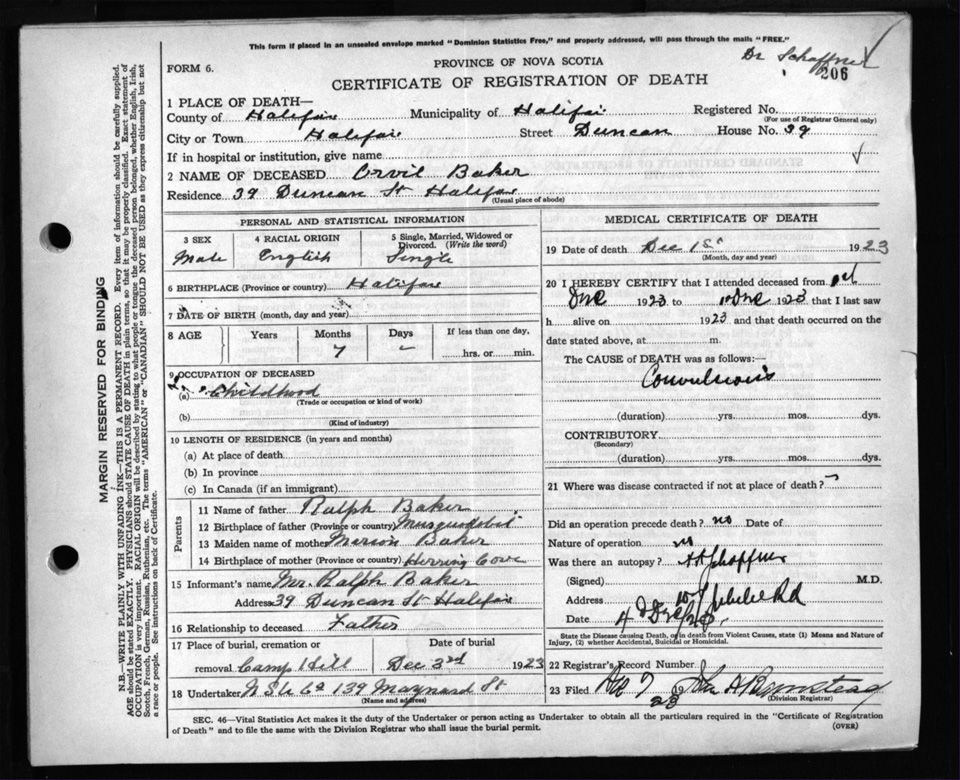 This form if placed in an unsealed envelope marked "Dominion Statistics Free," and properly addressed, will pass through the mails "FREE."
Dr Schaffner
206
FORM 6.
PROVINCE OF NOVA SCOTIA
CERTIFICATE OF REGISTRATION OF DEATH
1 PLACE OF DEATH—
County of Halifax Municipality of Halifax Registered No.
(For use of Registrar General only)
City or Town Halifax Street Duncan House No. 39
If in hospital or institution, give name
2 NAME OF DECEASED Orvil Baker
Residence 39 Duncan St Halifax
(Usual place of abode)
PERSONAL AND STATISTICAL INFORMATION
3 SEX 4 RACIAL ORIGIN 5 Single, Married, Widowed or
Divorced. (Write the word)
Male English Single
6 BIRTHPLACE (Province or country) Halifax
7 DATE OF BIRTH (month, day and year)
8 AGE Years Months Days If less than one day,
7 – hrs. or min.
9 OCCUPATION OF DECEASED
(a) Childhood
(Trade or occupation or kind of work)
(b)
(Kind of industry)
10 LENGTH OF RESIDENCE (in years and months)
(a) At place of death
(b) In province
(c) In Canada (if an immigrant)
Parents
11 Name of father Ralph Baker
12 Birthplace of father (Province or country) Musquodobit
13 Maiden name of mother Marion Baker
14 Birthplace of mother (Province or country) Herring Cove
15 Informant's name Mr. Ralph Baker
Address 39 Duncan St Halifax
16 Relationship to deceased Father
17 Place of burial, cremation or Date of burial
removal Camp Hill Dec 3rd 1923
18 Undertaker N S U Co 139 Maynard St
(Name and address)
MEDICAL CERTIFICATE OF DEATH
19 Date of death Dec 1st 1923
(Month, day and year)
20 I HEREBY CERTIFY that I attended deceased from
1923 to 1923 that I last saw
h alive on 1923 and that death occurred on the
date stated above, at m.
The CAUSE OF DEATH was as follows:—
Convulsions
(duration) yrs. mos. dys.
CONTRIBUTORY
(Secondary)
(duration) yrs. mos. dys.
21 Where was disease contracted if not at place of death?
Did an operation precede death? no Date of
Nature of operation
Was there an autopsy?
(Signed) Schaffner M.D.
Address
Date
State the Disease causing Death, or in death from Violent Causes, state (1) Means and Nature of
Injury, (2) whether Accidental, Suicidal or Homicidal.
22 Registrar's Record Number
23 Filed 7 19 23
(Division Registrar)
SEC. 46—Vital Statistics Act makes it the duty of the Undertaker or person acting as Undertaker to obtain all the particulars required in the "Certificate of Registration
of Death" and to file the same with the Division Registrar who shall issue the burial permit. (OVER)
MARGIN RESERVED FOR BINDING
N.B.—WRITE PLAINLY WITH UNFADING INK—THIS IS A PERMANENT RECORD. Every item of information should be carefully supplied.
AGE should be stated EXACTLY. PHYSICIANS should STATE CAUSE OF DEATH in plain terms, so that it may be properly classified. Exact statement of
OCCUPATION is very important. RACIAL ORIGIN will be described by stating to what people or tongue the deceased person belonged, whether English, Irish,
Scotch, French, German, Russian, Ruthenian, etc. The terms "AMERICAN" or "CANADIAN" SHOULD NOT BE USED as they express citizenship but not
a race or people. See instructions on back of Certificate.